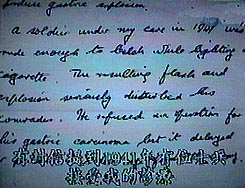 gastric explosion.
A soldier under my care in 1941 was
rude enough to belch while lighting
cigarette. The resulting flash and
explosion seriously disturbed his
comrades. He refused an operation for
his gastric carcinoma but it delayed
1941年有位士兵